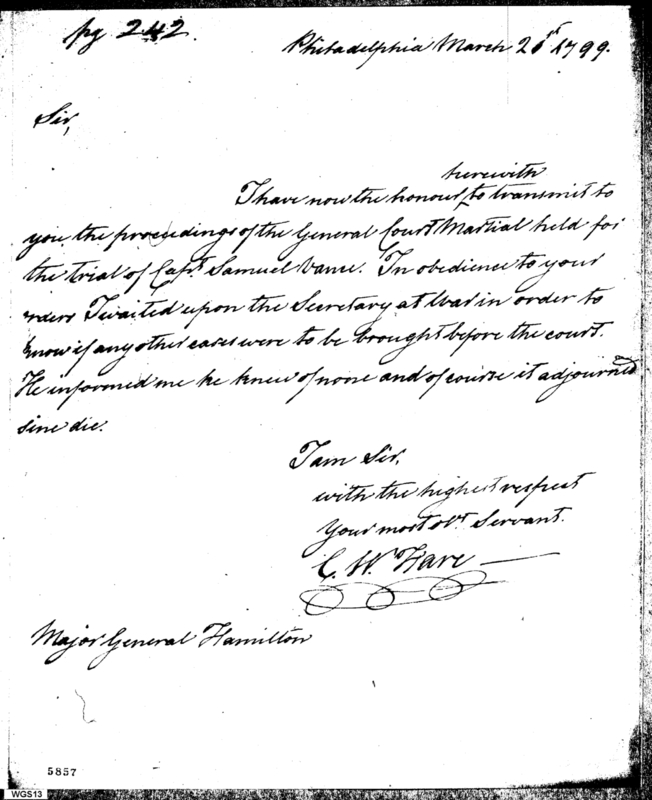 pg 242.
Philadelphia March 21st 1799.
Sir,
herewith
I have now the honour to transmit to
you the proceedings of the General Court Martial held for
the trial of Capt. Samuel Vance. In obedience to your
orders I waited upon the Secretary at War in order to
know if any other cases were to be brought before the court.
He informed me he knew of none and of course it adjourned
sine die.
I am Sir,
with the highest respect
Your most obt. Servant.
C. W. Hare
Major General Hamilton
5857
WGS13